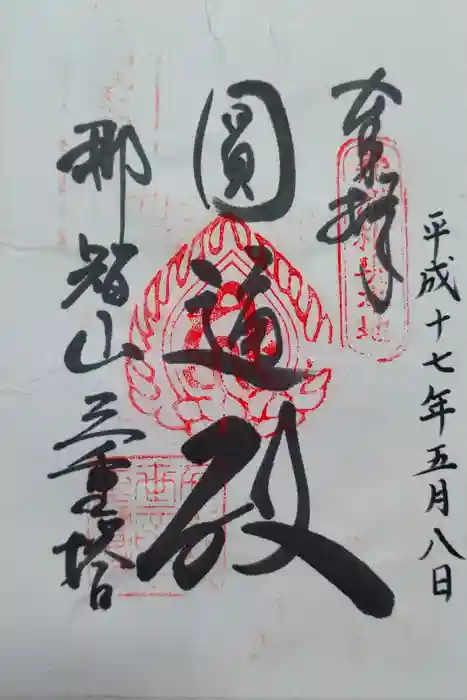 平成十七年五月八日
奉拝
圓通殿
那智山三重塔